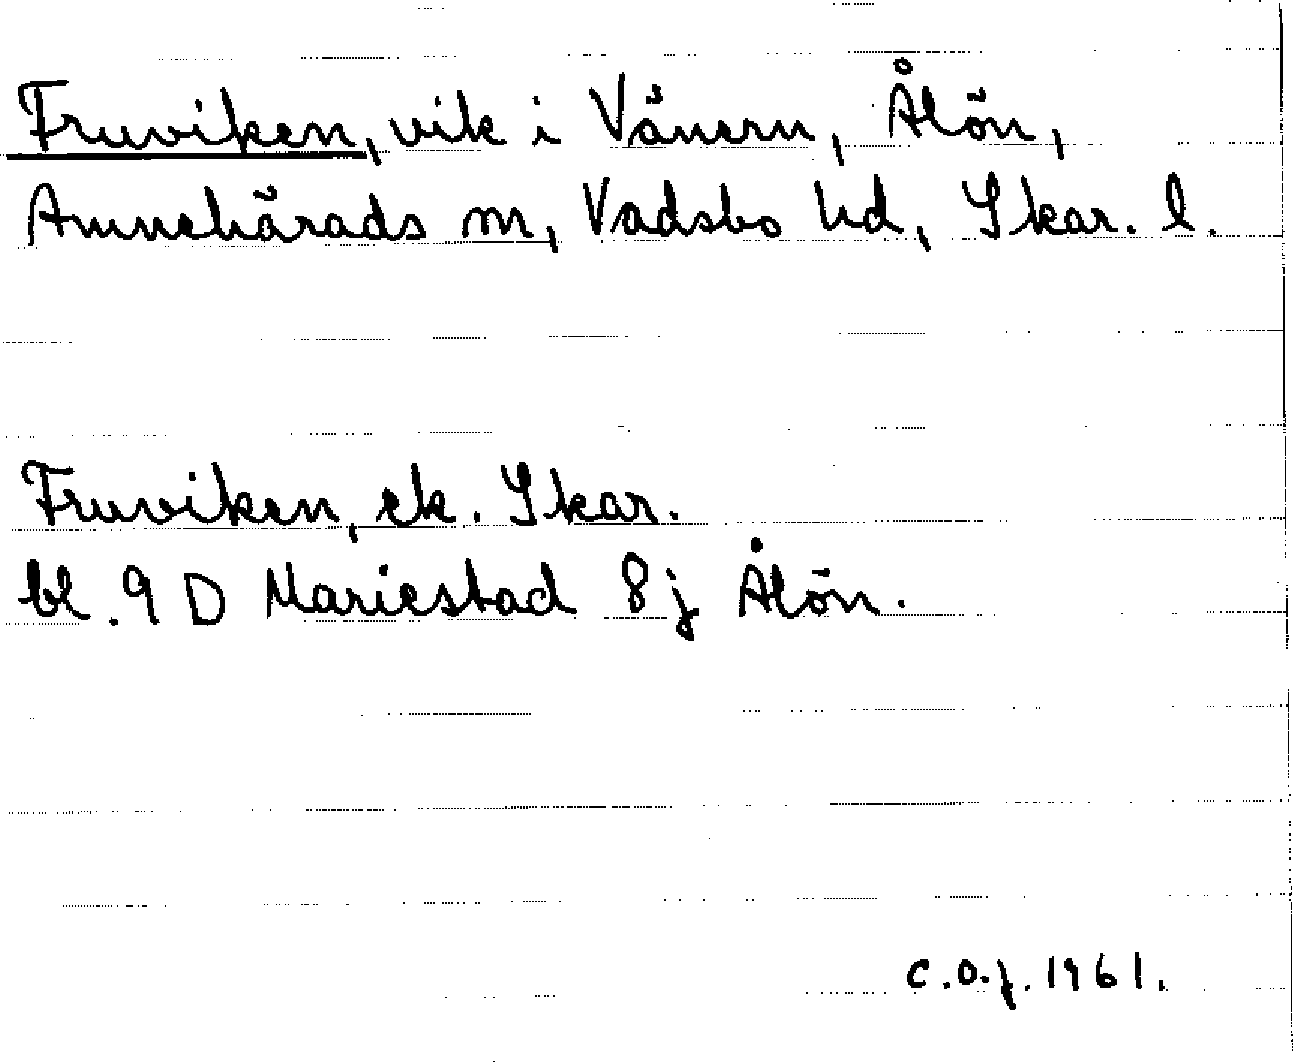 Fruviken, vik i Vänern, Ålön,
Amnehärads sn, Vadsbo hd, Skar. l.
Fruviken, ek. Skar.
bl. 9 D Mariestad 8 j Ålön.
C.O.f. 1961.